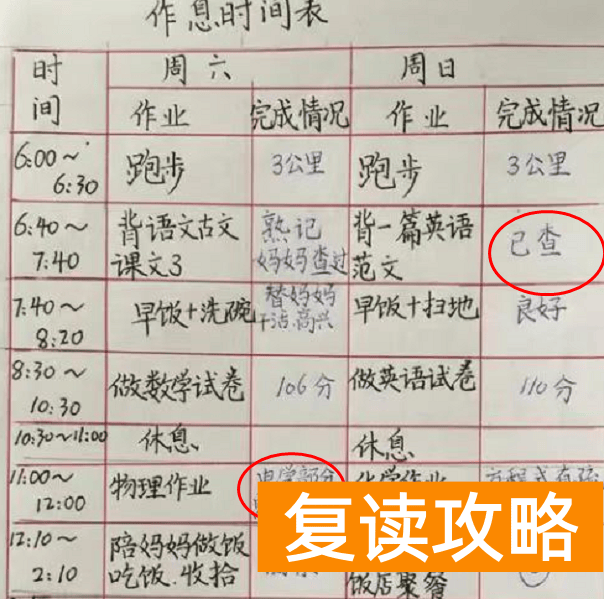 作息时间表
时间 周六 周日
作业 完成情况 作业 完成情况
6:00~6:30 跑步 3公里 跑步 3公里
6:40~7:40 背语文古文课文3 熟记妈妈查过 背一篇英语范文 已查
7:40~8:20 早饭+洗碗 替妈妈干活.高兴 早饭+扫地 良好
8:30~10:30 做数学试卷 106分 做英语试卷 110分
10:30~11:00 休息 休息
11:00~12:00 物理作业 电学部分 化学作业
12:10~2:10 陪妈妈做饭吃饭.收拾 饭店聚餐
复读攻略